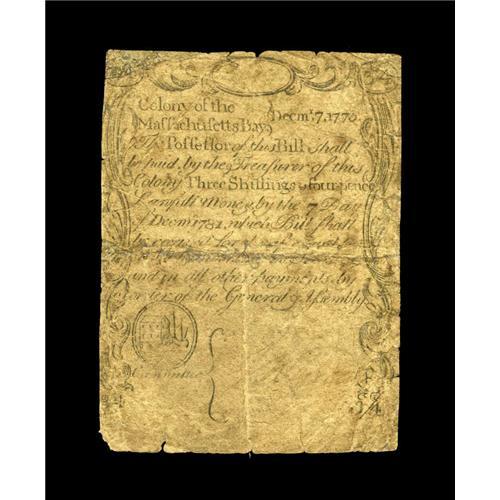 Colony of the Decmr. 7, 1776
Massachusetts Bay
The Possessor of this Bill shall
be paid by the Treasurer of this
Colony Three Shillings & four pence
Lawfull Money by the 7 Day
of Decmr 1781, which Bill shall
be received for
and in all other payments by
order of the General Assembly
Committee
3/4